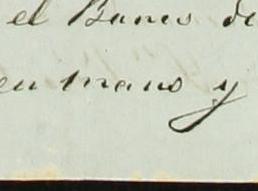 el Banco de
en mano y